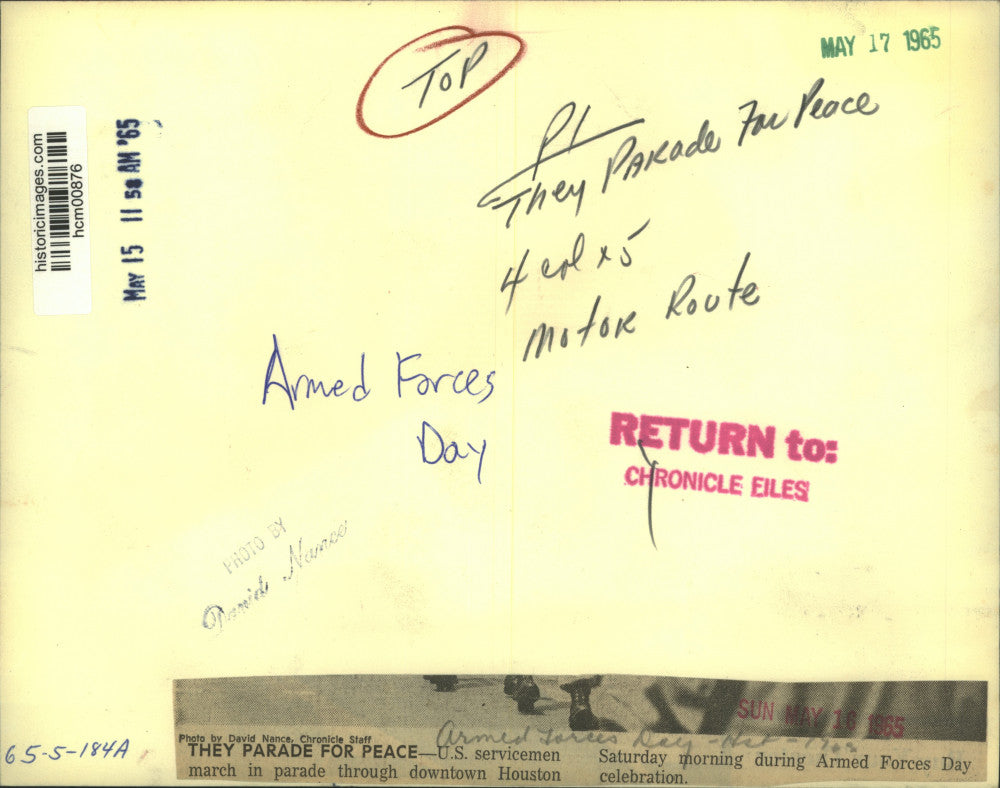 TOP
MAY 17 1965
historicimages.com
hcm00876
MAY 15 11 58 AM '65
PL
They Parade For Peace
4 col x 5
Motor Route
Armed Forces
Day
RETURN to:
CHRONICLE FILES
PHOTO BY
David Nance
SUN MAY 16 1965
65-5-184A
Armed Forces Day
Photo by David Nance, Chronicle Staff
THEY PARADE FOR PEACE—U.S. servicemen
march in parade through downtown Houston
Saturday morning during Armed Forces Day
celebration.